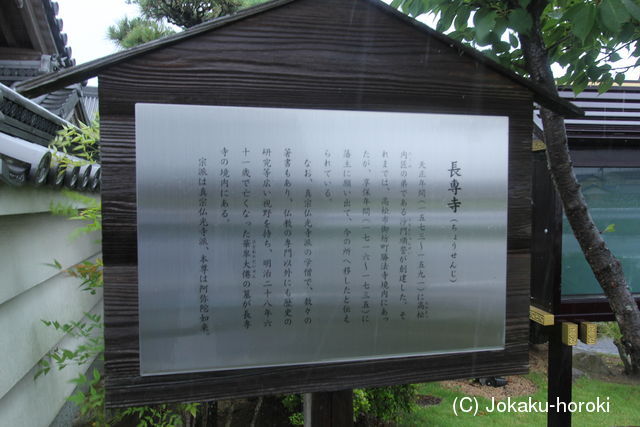 長専寺（ちょうせんじ）
天正年間（一五七三～一五九一）に秋松
内匠の弟である沙門順誓が創建した。そ
れまでは、高松市御坊町勝法寺境内にあっ
たが、享保年間（一七一六～一七三五）に
藩主に願い出て、今の所へ移したと伝え
られている。
なお、真宗仏光寺派の学僧で、数々の
著書もあり、仏教の専門以外にも歴史の
研究等広い視野を持ち、明治二十八年六
十一歳で亡くなった華皐大僊の墓が長専
寺の境内にある。
宗派は真宗仏光寺派、本尊は阿弥陀如来。
(C) Jokaku-horoki